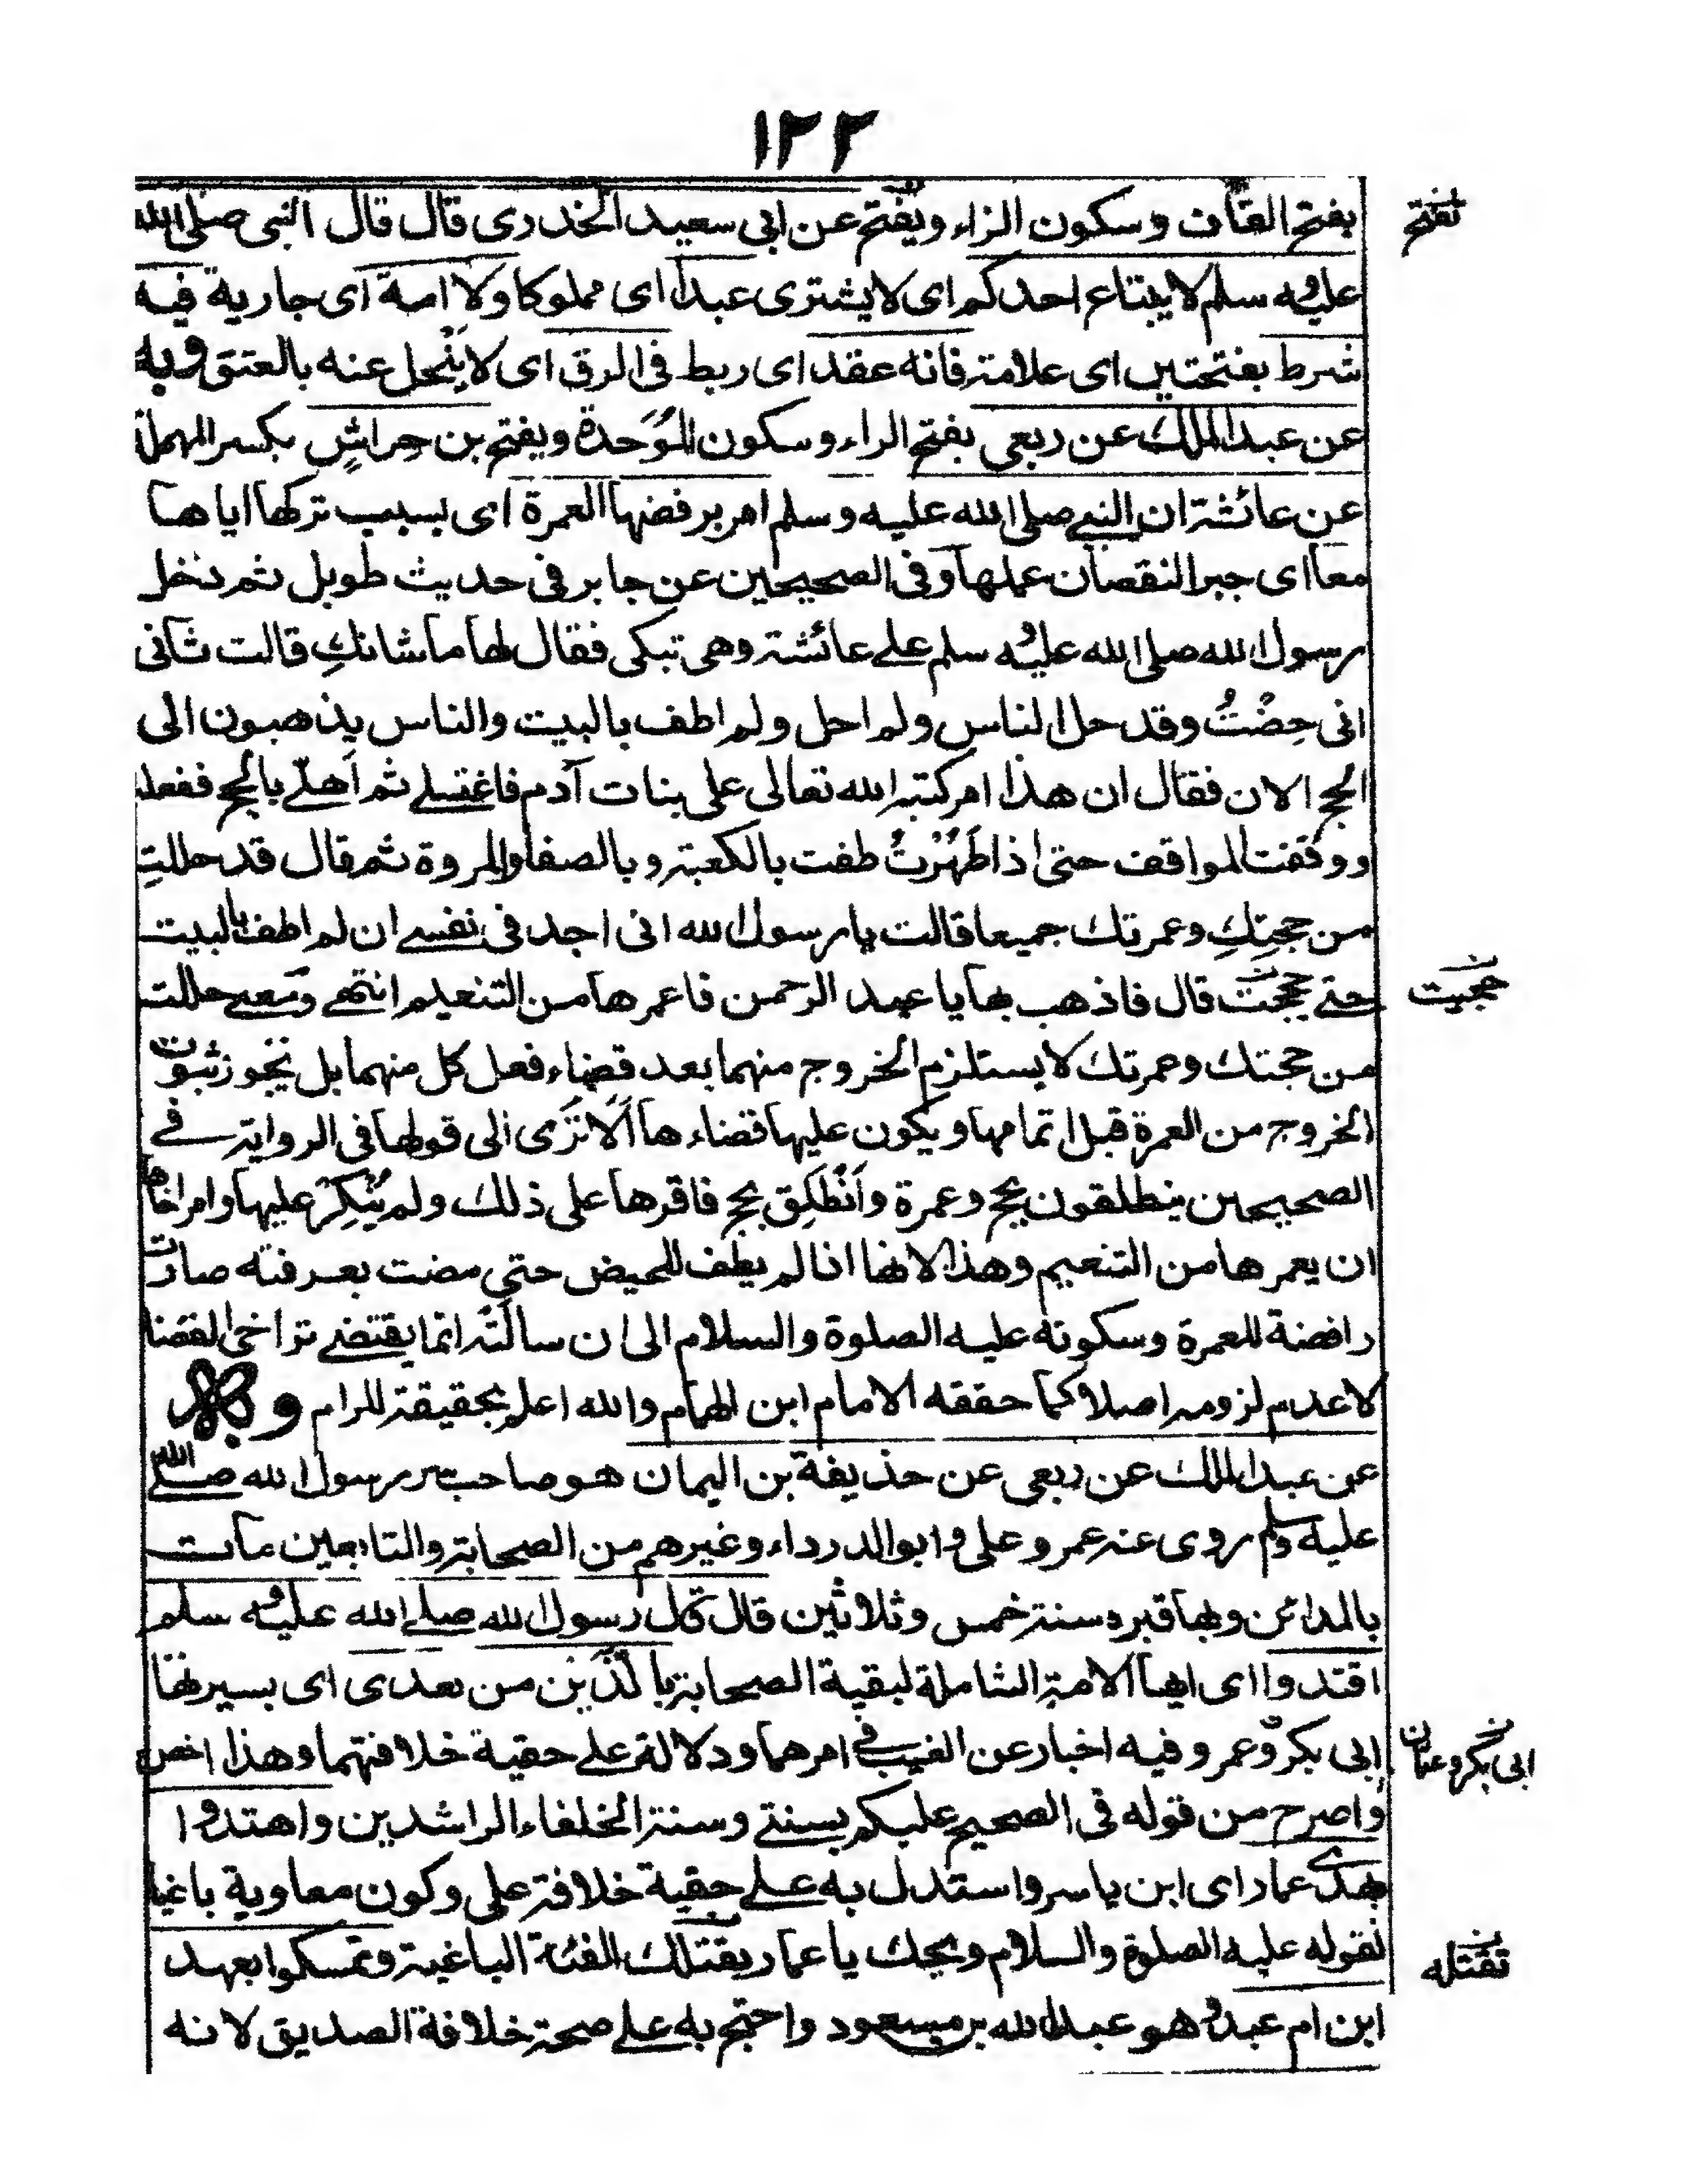 ١٢٢
بفتح القاف وسكون الزاء ويفتح عن ابى سعيد الخدرى قال قال النبى صلى الله
تفتح
عليه وسلم لا يبتاع احدكم اى لا يشترى عبدا اى مملوكا ولا امة اى جارية فيه
شرط بفتحتين اى علامة فانه عقد اى ربط فى الرق اى لا ينحل عنه بالعتق وبه
عن عبد الملك عن ربعى بفتح الراء وسكون الموحدة ويفتح بن حِراشٍ بكسر المهملة
عن عائشة ان النبى صلى الله عليه وسلم امر برفضها العمرة اى بسبب تركها اياها
معا اى جبرا لنقصان عملها وفى الصحيحين عن جابر فى حديث طويل ثم دخل
رسول الله صلى الله عليه وسلم على عائشة وهى تبكى فقال لها ما شانكِ قالت شانى
انى حِضْتُ وقد حل الناس ولم احل ولم اطف بالبيت والناس يذهبون الى
الحج الان فقال ان هذا امر كتبه الله تعالى على بنات آدم فاغتسلى ثم اَهلّى بالحج ففعلت
ووقفت المواقف حتى اذا طَهُرْتُ طفت بالكعبة وبالصفا والمروة ثم قال قد حللتِ
من حجتِكِ وعمرتك جميعا قالت يا رسول الله انى اجد فى نفسى ان لم اطف بالبيت
حتى حججت قال فاذهب بها يا عبد الرحمن فاعمرها من التنعيم انتهى ومعنى حللت
حججت
من حجتك وعمرتك لا يستلزم الخروج منهما بعد قضاء فعل كل منهما بل يجوز ثبوت
الخروج من العمرة قبل اتمامها ويكون عليها قضاءها اَلا تَرى الى قولها فى الرواية فى
الصحيحين ينطلقون بحج وعمرة واَنْطَلِق بحج فاقرها على ذلك ولم يُنْكِرْ عليها وامر اخاها
ان يعمرها من التنعيم وهذا لانها اذا لم يطف للحيض حتى مضت بعرفته صارت
رافضة للعمرة وسكوته عليه الصلوة والسلام الى ان سالَتْه انما يقتضى تراخى القضا
لا عدم لزومه اصلا كما حققه الامام ابن الهمام والله اعلم بحقيقة المرام وبه
عن عبد الملك عن ربعى عن حذيفة بن اليمان هو صاحب سر رسول الله صلى الله
عليه وسلم روى عنه عمر وعلى وابو الدرداء وغيرهم من الصحابة والتابعين مات
بالمدائن وبها قبره سنة خمس وثلاثين قال قال رسول الله صلى الله عليه وسلم
اقتدوا اى ايها الامة الشاملة لبقية الصحابة بالَّذَيْن من بعدى اى بسيرتها
ابى بكر وعمر وفيه اخبار عن الغيب فى امرهما ودلالة على حقية خلافتهما وهذا اخص
ابى بكر وعثمان
واصرح من قوله فى الصحيح عليكم بسنتى وسنة الخلفاء الراشدين واهتدوا
بهدى عمار اى ابن ياسر واستدل به على حقية خلافة على وكون معاوية باغيا
لقوله عليه الصلوة والسلام ويحك يا عمار يقتلك الفئة الباغية وتمسكوا بعهد
تقتله
ابن ام عبد وهو عبد الله بن مسعود واحتج به على صحة خلافة الصديق لانه